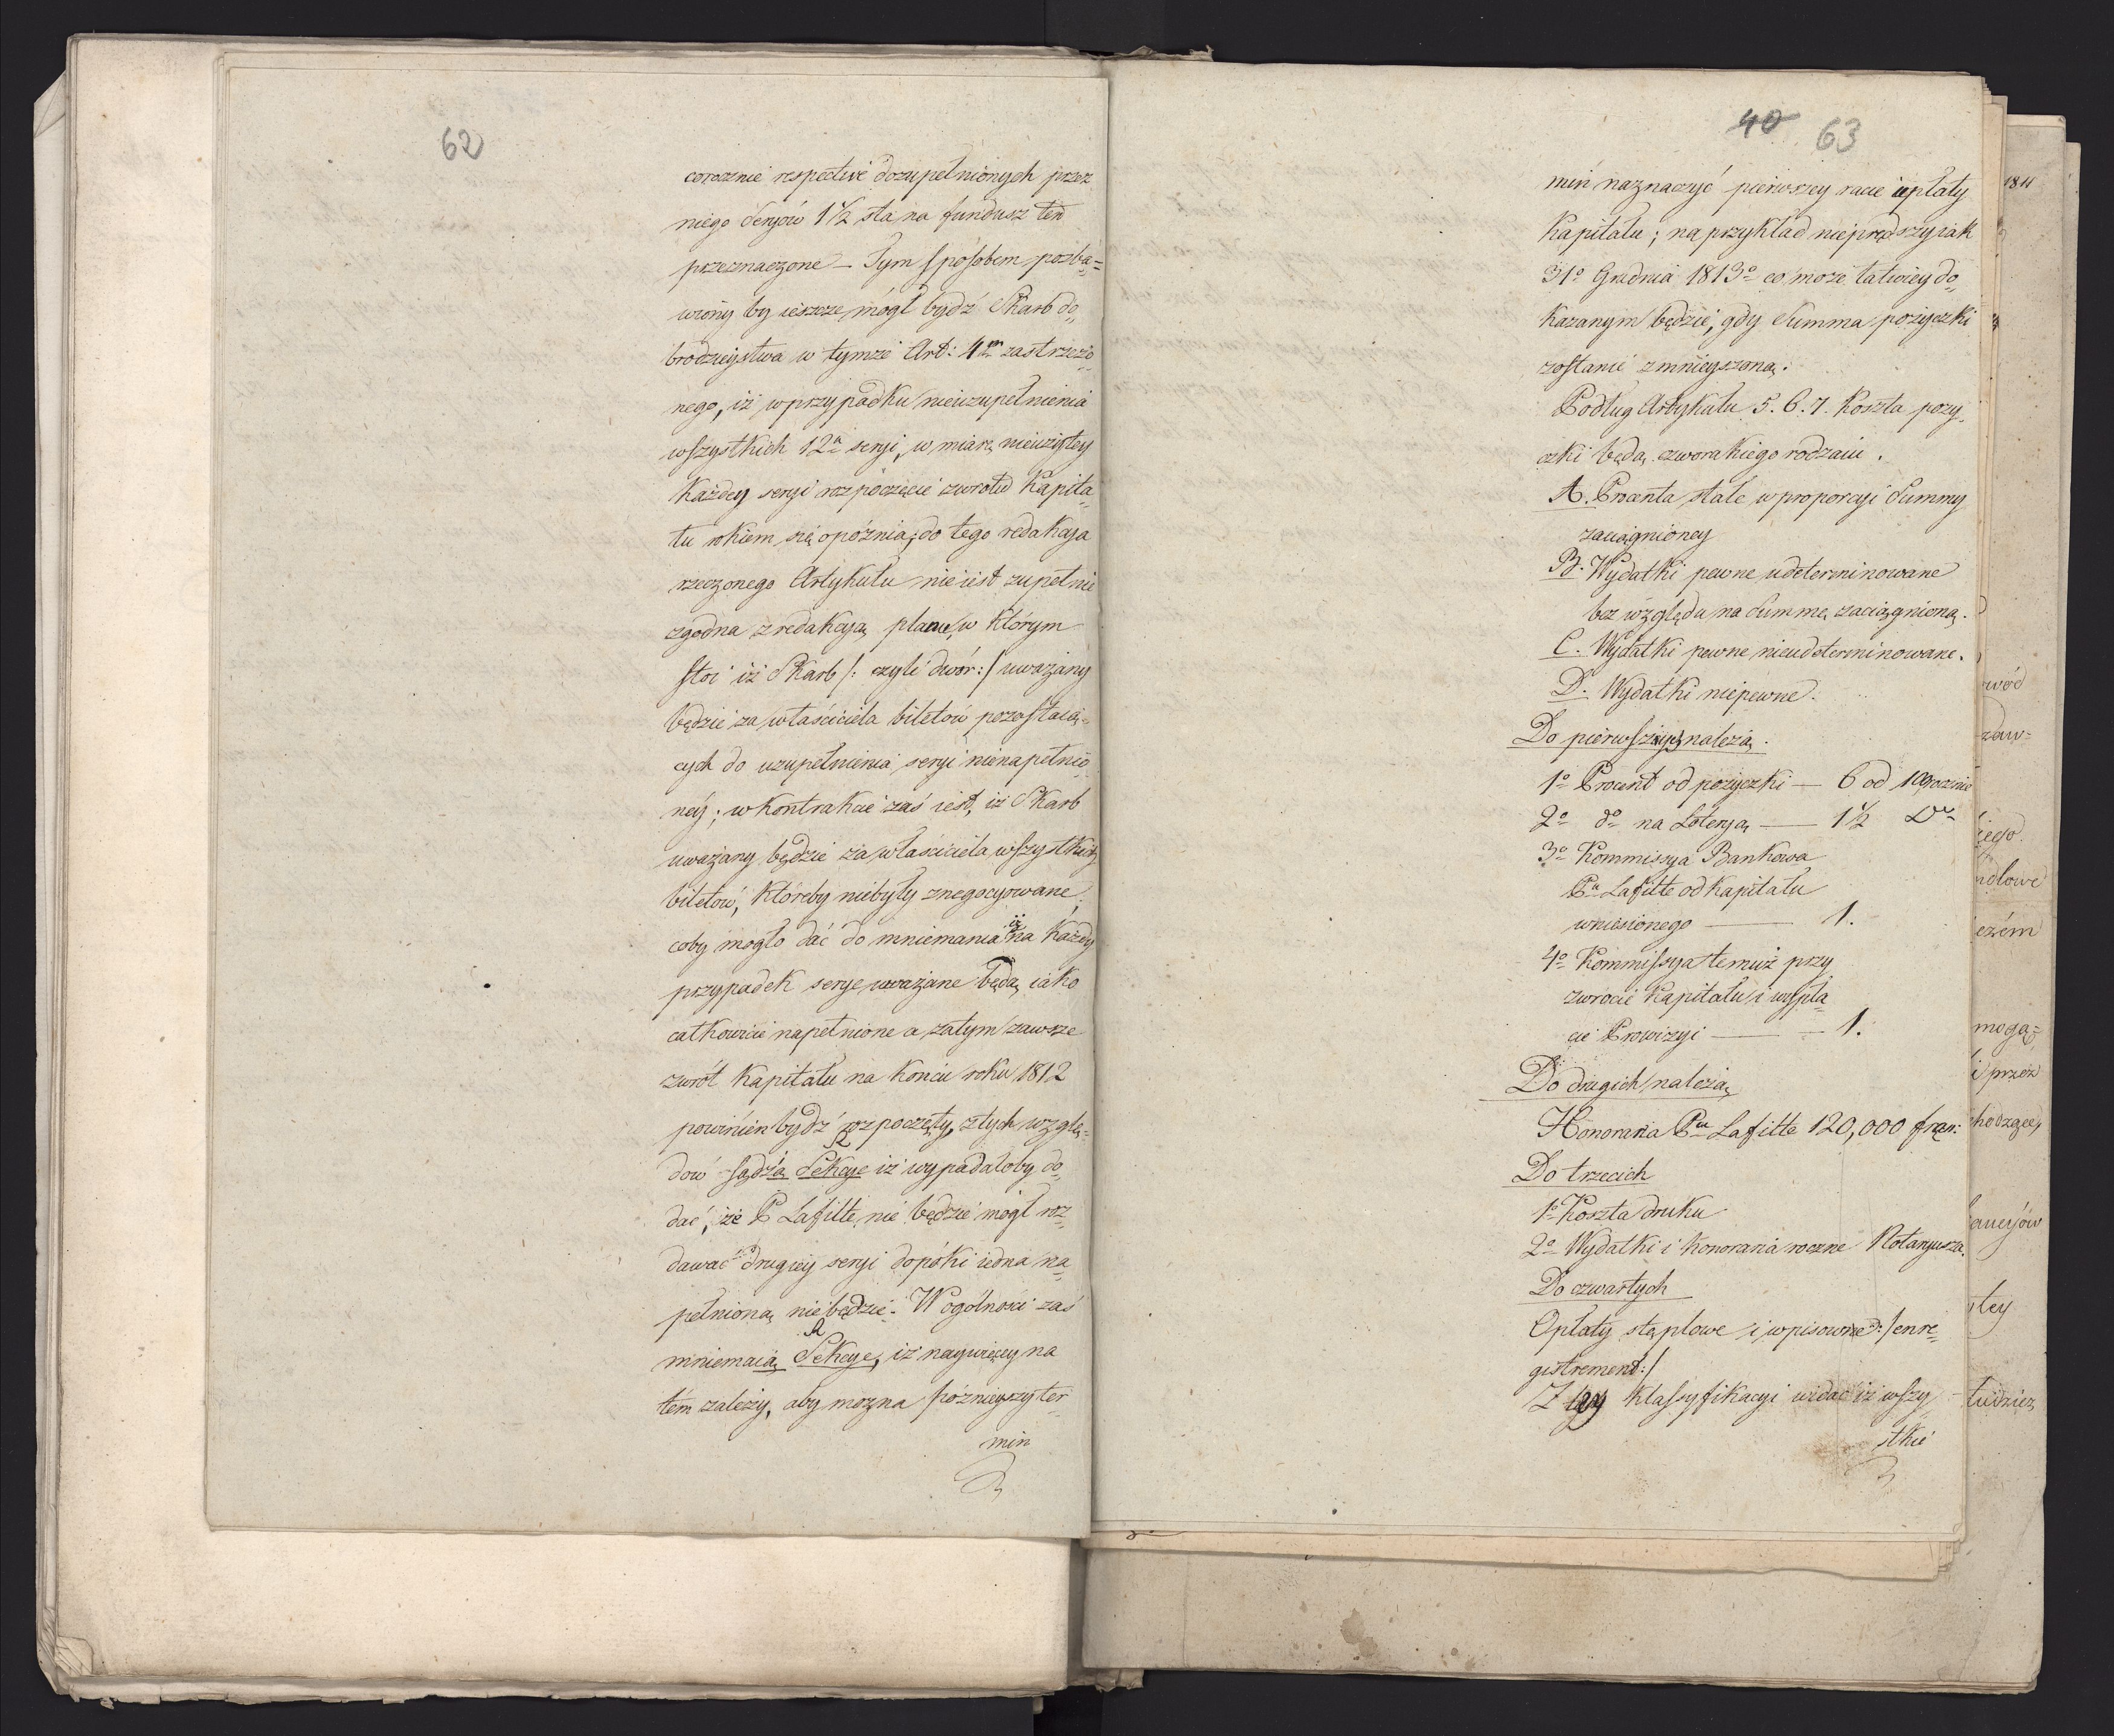 62
corocznie respective dozupełnionych przez
niego Seryów 1 1/2 sta na fundusz ten
przeznaczone — Tym sposobem pozba=
wiony by ieszcze mógł bydź Skarb do„
brodzieystwa w tymże Art: 4m zastrzeżo„
nego, iż w przypadku nieuzupełnienia
wszystkich 12a seryi, w miarę niewziętey
każdey seryi rozpoczęcie zwrotu Kapita„
łu rokiem się opóźnia; do tego redakcya
rzeczonego Artykułu nie iest zupełnie
zgodna z redakcyą planu, w którym
stoi iż Skarb /: czyli dwór :/ uważany
będzie za właściciela biletów pozostaią=
cych do uzupełnienia seryi nienapełnio„
ney; w kontrakcie zaś iest, iż Skarb
uważany będzie za właściciela wszystkich
biletów, któreby niebyły znegocyowane;
coby mogło dać do mniemania iż na każdy
przypadek serye uważane będą iako
całkowicie napełnione a zatym zawsze
zwrót Kapitału na końcu roku 1812
powinien bydź rozpoczęty, z tych wzglę=
dów sądzą Sekcye iż wypadałoby do„
dać, że P Lafitte nie będzie mógł roz„
dawać drugiey seryi dopóki iedna na„
pełnioną niebędzie. W ogólności zaś
mniemaią Sekcye, iż naywięcey na
tém zależy, aby można późnieyszy ter„
min
40 63
min naznaczyć pierwszey racie wpłaty
Kapitału; naprzykład nieprędszy iak
31o Grudnia 1813o co może łatwiey do„
kazanym będzie, gdy Summa pożyczki
zostanie zmnieyszoną.
Podług Artykułu 5. 6. 7. koszta poży„
czki będą czworakiego rodzaiu.
A. Procenta stałe w proporcyi Summy
zaciągnioney
B. Wydatki pewne udeterminowane
bez względu na Summę zaciągnioną.
C. Wydatki pewne nieudeterminowane.
D. Wydatki niepewne.
Do pierwszych należą.
1o Procent od pożyczki — 6 od 100 rocznie
2o do na Loteryą — 1 1/2 Do
3o Kommissya Bankowa
Pa Lafitte od Kapitału
wniesionego — 1.
4o Kommissya temuż przy
zwrocie Kapitału i wypła„
cie Prowizyi — 1.
Do drugich należą
Honoraria Pa Lafitte 120,000 fran:
Do trzecich
1o Koszta druku
2o Wydatki i honoraria roczne Notaryusza.
Do czwartych
Opłaty stęplowe i wpisowne /: enre„
gistrement :/
Z tey klassyfikacyi widać iż wszy„
stkie
1811
wód
zaw=
iego
ndlowe
czém
mogą=
i przez
hodzące,
aucyów
tey
tudzież